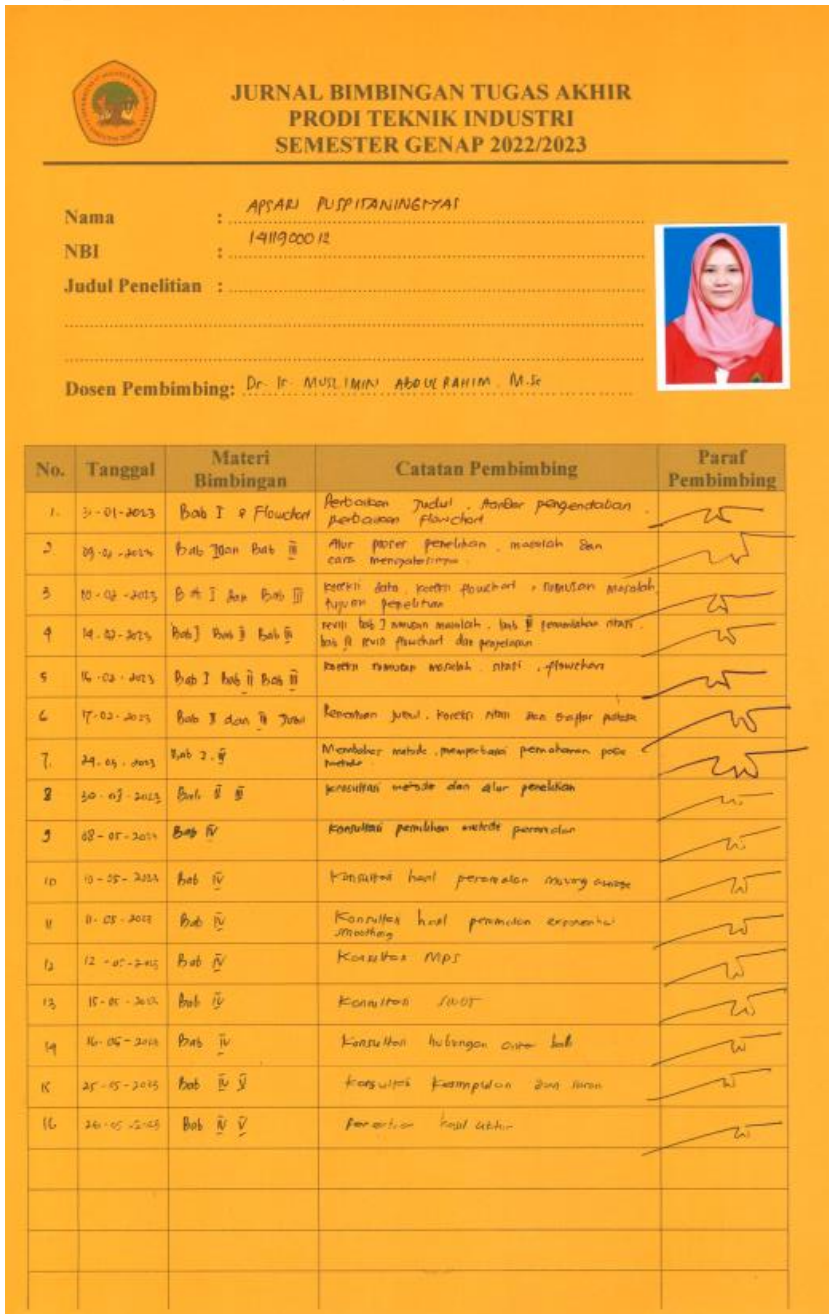 JURNAL BIMBINGAN TUGAS AKHIR
PRODI TEKNIK INDUSTRI
SEMESTER GENAP 2022/2023
Nama : APSARI PUSPITANINGTYAS
NBI : 1411900012
Judul Penelitian :
Dosen Pembimbing: Dr. Ir. MUSLIMIN ABDULRAHIM. M.Sc
No. Tanggal Materi Bimbingan Catatan Pembimbing Paraf Pembimbing
1. 31-01-2023 Bab I & Flowchart Perbaikan Judul, pengendalian
perbaikan Flowchart
2. 2023 Bab I dan Bab III Alur proses penelitian, masalah dan
cara mengatasinya
3 10-02-2023 Bab I dan Bab III koreksi data, koreksi flowchart, rumusan masalah,
tujuan penelitian
4 14-02-2023 Bab I Bab II Bab III revisi bab I rumusan masalah, bab II penambahan sitasi,
bab III revisi flowchart dan penjelasan
5 16-02-2023 Bab I Bab II Bab III koreksi rumusan masalah, sitasi, flowchart
6 17-02-2023 Bab dan Judul Penentuan judul, koreksi sitasi dan daftar pustaka
7. 2023 Bab Membahas metode, memperbaiki pemahaman pada
metode
8 30-03-2023 Bab II III konsultasi metode dan alur penelitian
9 08-05-2023 Bab IV Konsultasi pemilihan metode peramalan
10 10-05-2023 Bab IV Konsultasi hasil peramalan moving average
11 11-05-2023 Bab IV Konsultasi hasil peramalan exponential
smoothing
12 12-05-2023 Bab IV Konsultasi MPS
13 15-05-2023 Bab IV Konsultasi SWOT
14 16-05-2023 Bab IV Konsultasi hubungan antar bab
15 25-05-2023 Bab IV V Konsultasi kesimpulan dan saran
16 26-05-2023 Bab IV V hasil akhir